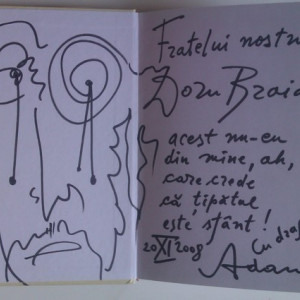 Fratelui nostru
Doru Braia
acest nu-eu
din mine, ah,
care crede
că tipătul
este sfânt!
Cu drag
20 XI 2008
Adam